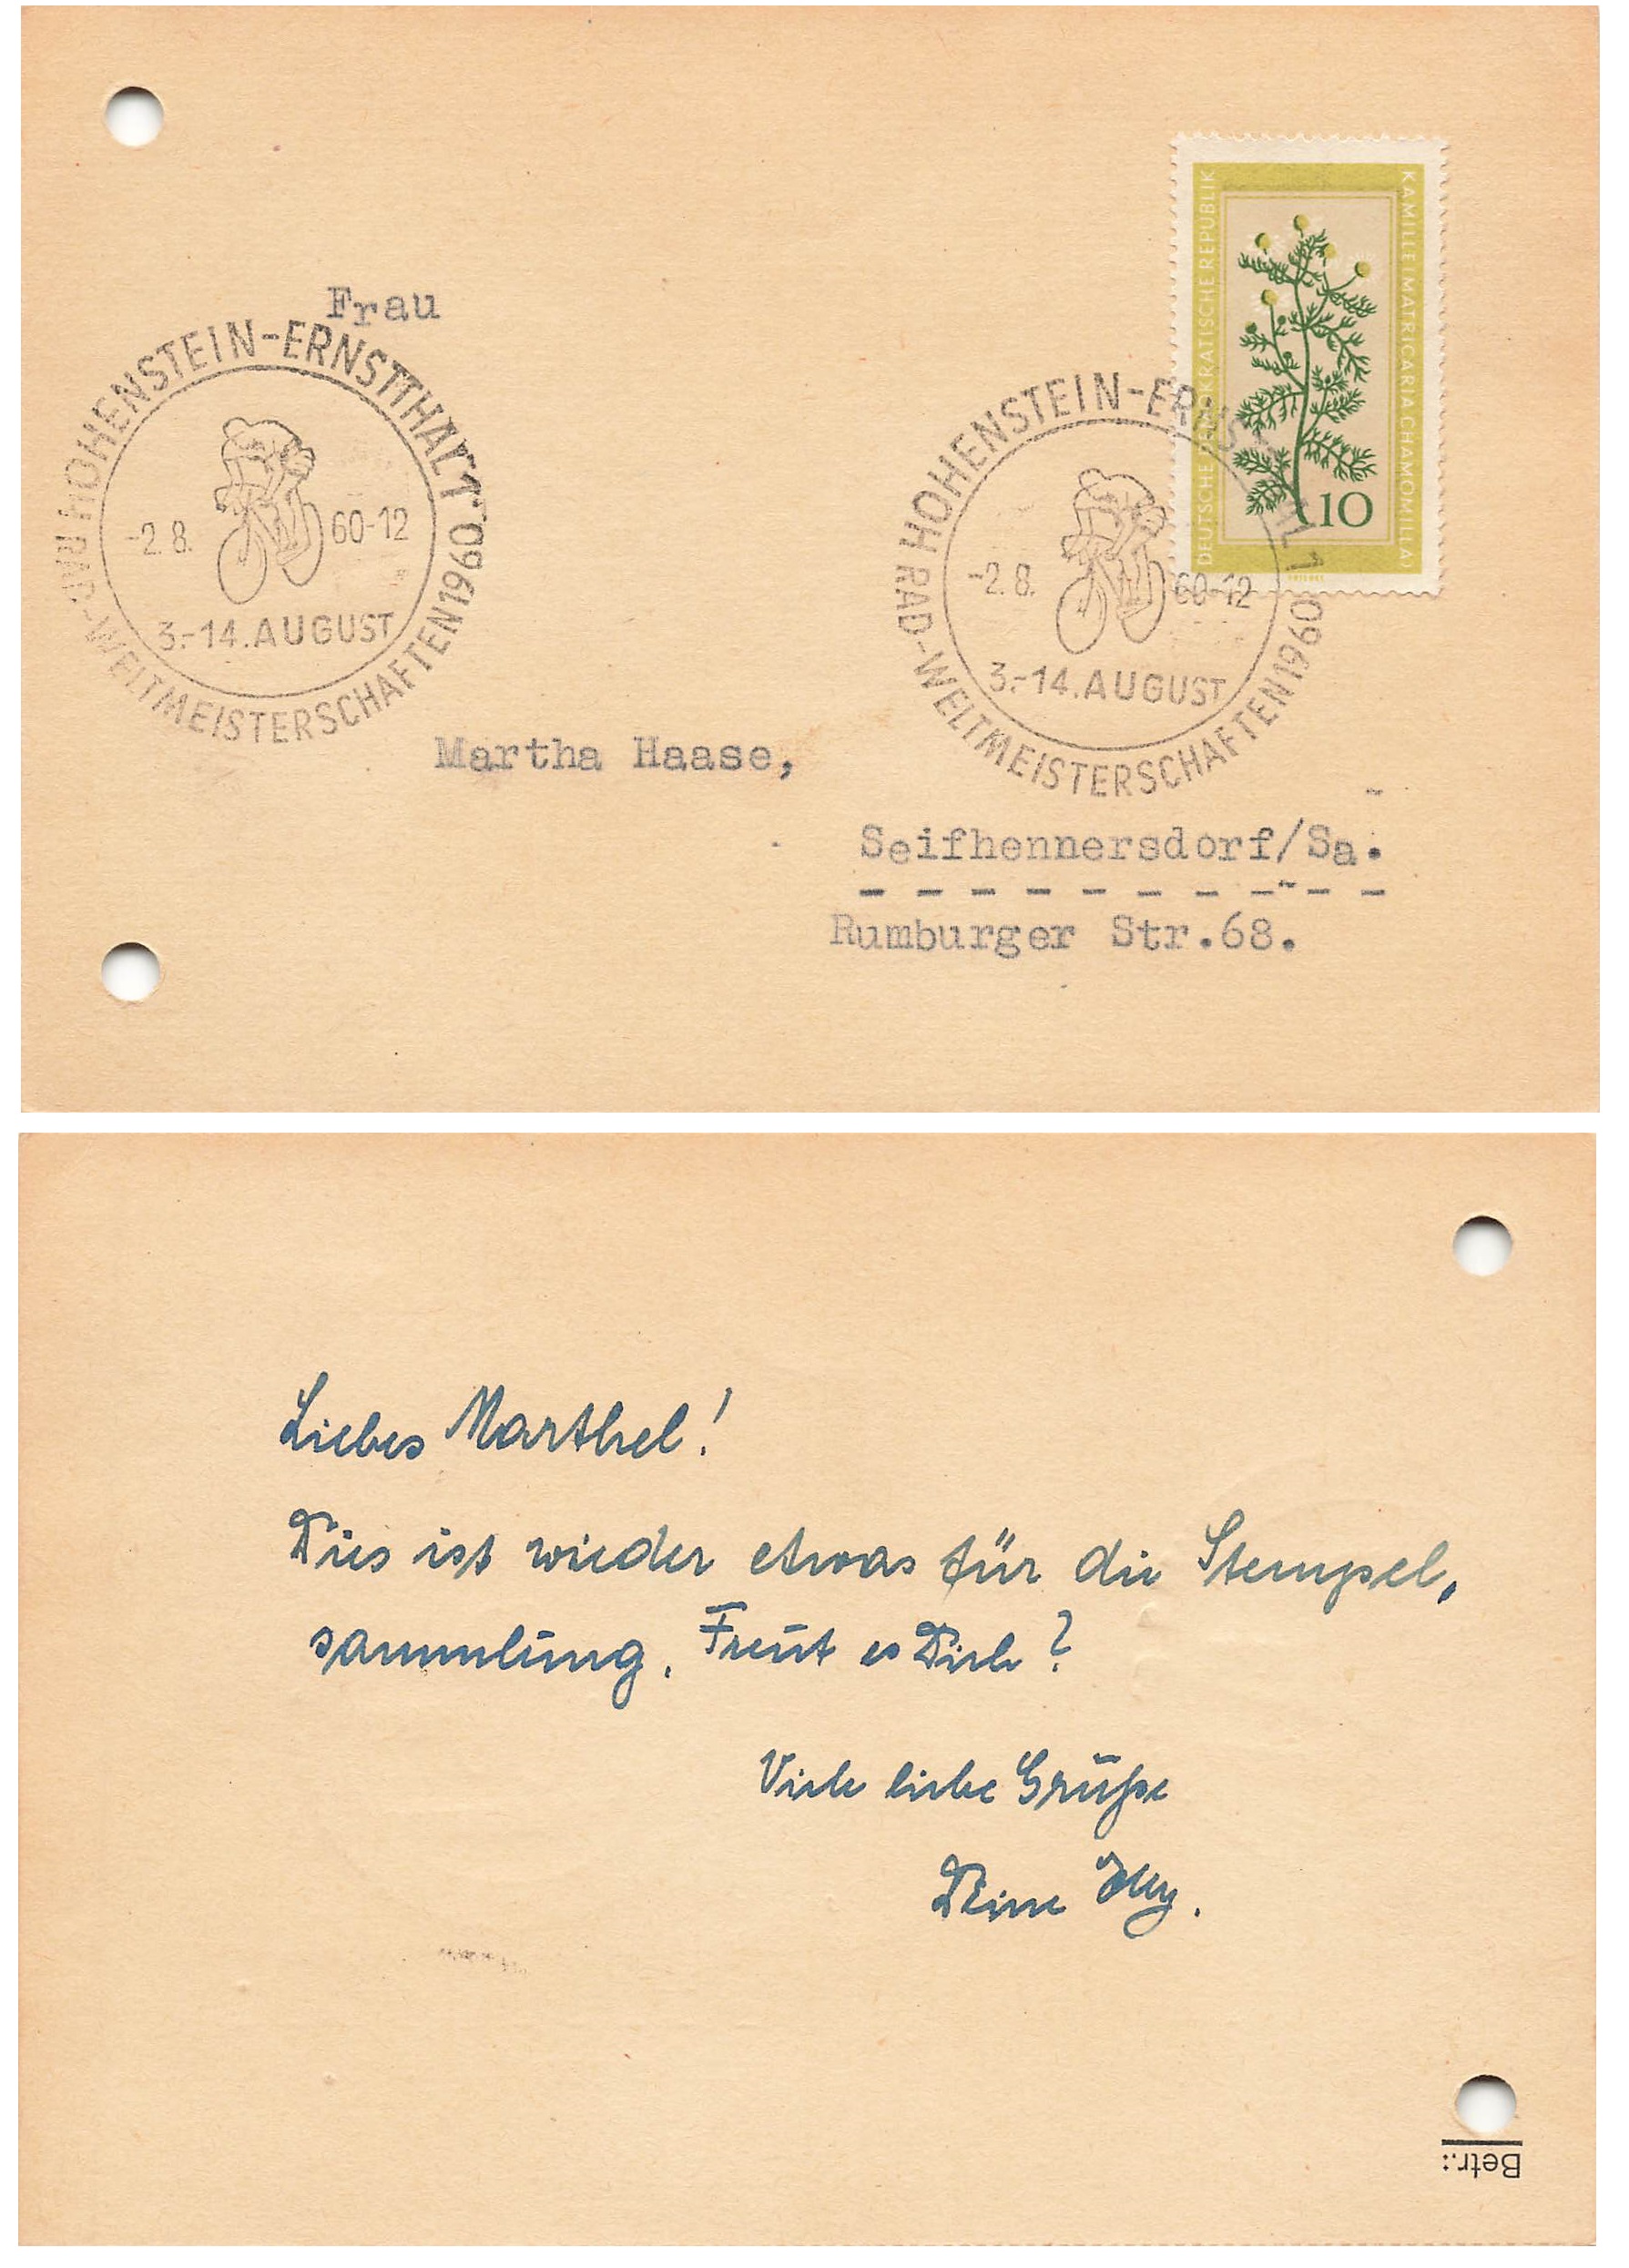 Frau
HOHENSTEIN-ERNSTTHAL 1
-2.8. 60-12
3.-14. AUGUST
RAD-WELTMEISTERSCHAFTEN 1960
DEUTSCHE DEMOKRATISCHE REPUBLIK
KAMILLE (MATRICARIA CHAMOMILLA)
10
HOHENSTEIN-ERNSTTHAL 1
-2.8. 60-12
3.-14. AUGUST
RAD-WELTMEISTERSCHAFTEN 1960
Martha Haase,
Seifhennersdorf/Sa.
Rumburger Str.68.
Liebes Marthel!
Dies ist wieder etwas für die Stempel,
sammlung. Freut es Dich?
Viele liebe Grüße
Deine
Betr.: